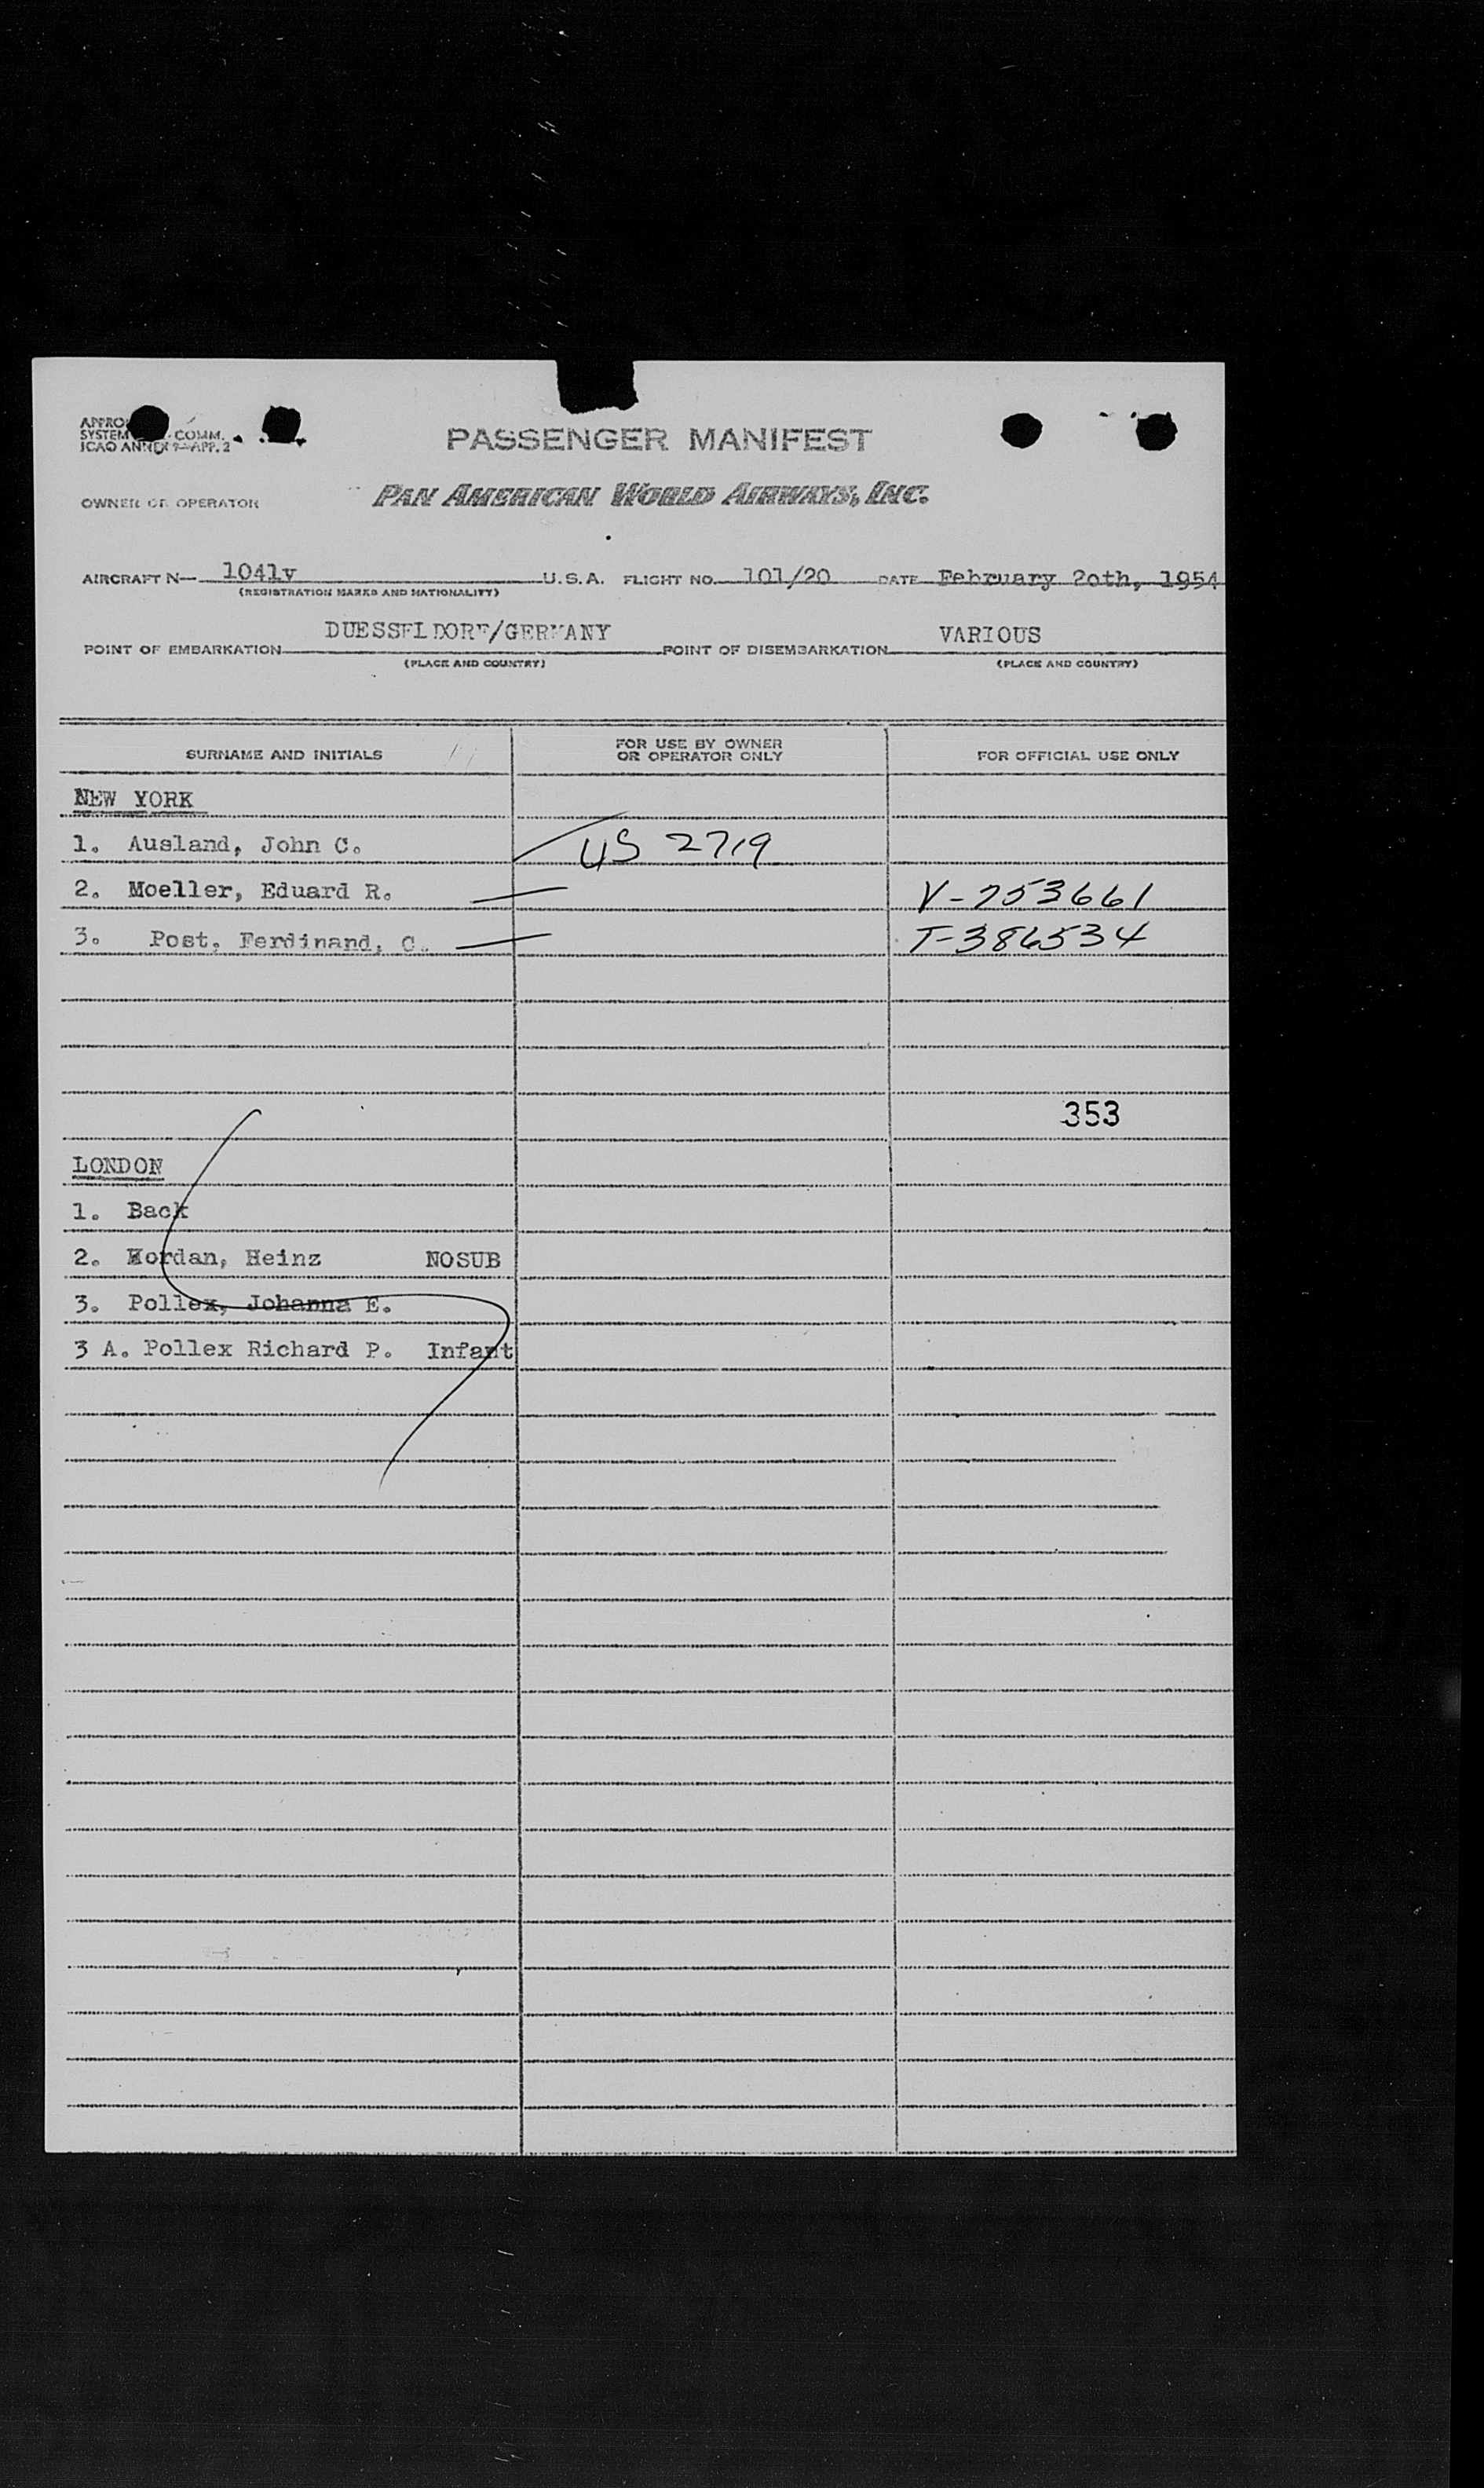 SYSTEM COMM.
ICAO ANNEX 9-APP. 2
PASSENGER MANIFEST
OWNER OR OPERATOR PAN AMERICAN WORLD AIRWAYS, INC.
AIRCRAFT N— 1041v U.S.A. FLIGHT NO. 101/20 DATE February 2oth, 1954
(REGISTRATION MARKS AND NATIONALITY)
DUESSELDORF/GERMANY VARIOUS
POINT OF EMBARKATION POINT OF DISEMBARKATION
(PLACE AND COUNTRY) (PLACE AND COUNTRY)
SURNAME AND INITIALS FOR USE BY OWNER OR OPERATOR ONLY FOR OFFICIAL USE ONLY
NEW YORK
1. Ausland, John C. US 2719
2. Moeller, Eduard R. V-253661
3. Post, Ferdinand, C. T-386534
353
LONDON
1. Back
2. Kordan, Heinz NOSUB
3. Pollex, Johanna E.
3 A. Pollex Richard P. Infant